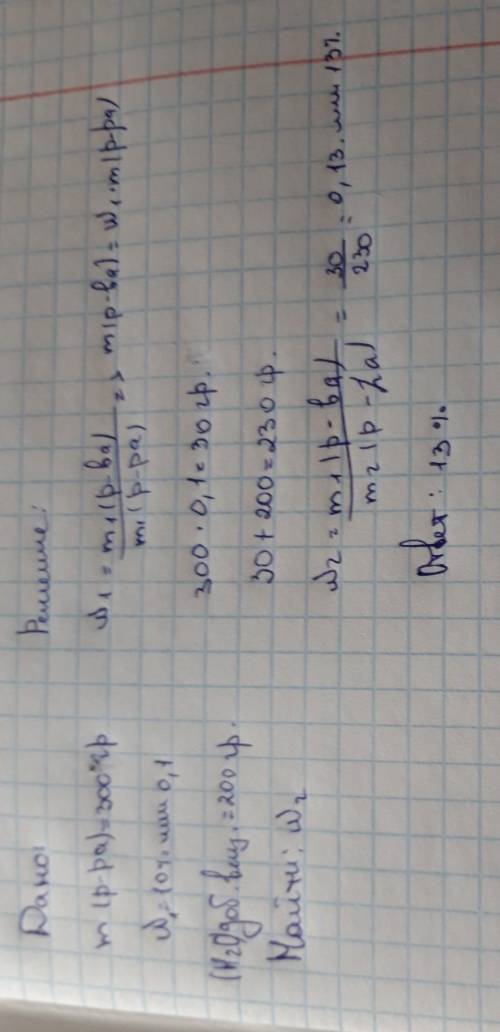 Дано:
m (р-ра) = 300 гр
ω₁ = 10% или 0,1
(H₂O) доб. вещ. = 200 гр.
Найти: ω₂
Решение:
ω₁ = m₁(р-ва) / m₁(р-ра) => m(р-ва) = ω₁ · m(р-ра)
300 · 0,1 = 30 гр.
30 + 200 = 230 гр.
ω₂ = m₁(р-ва) / m₂(р-ра) = 30 / 230 = 0,13. или 13%.
Ответ: 13%